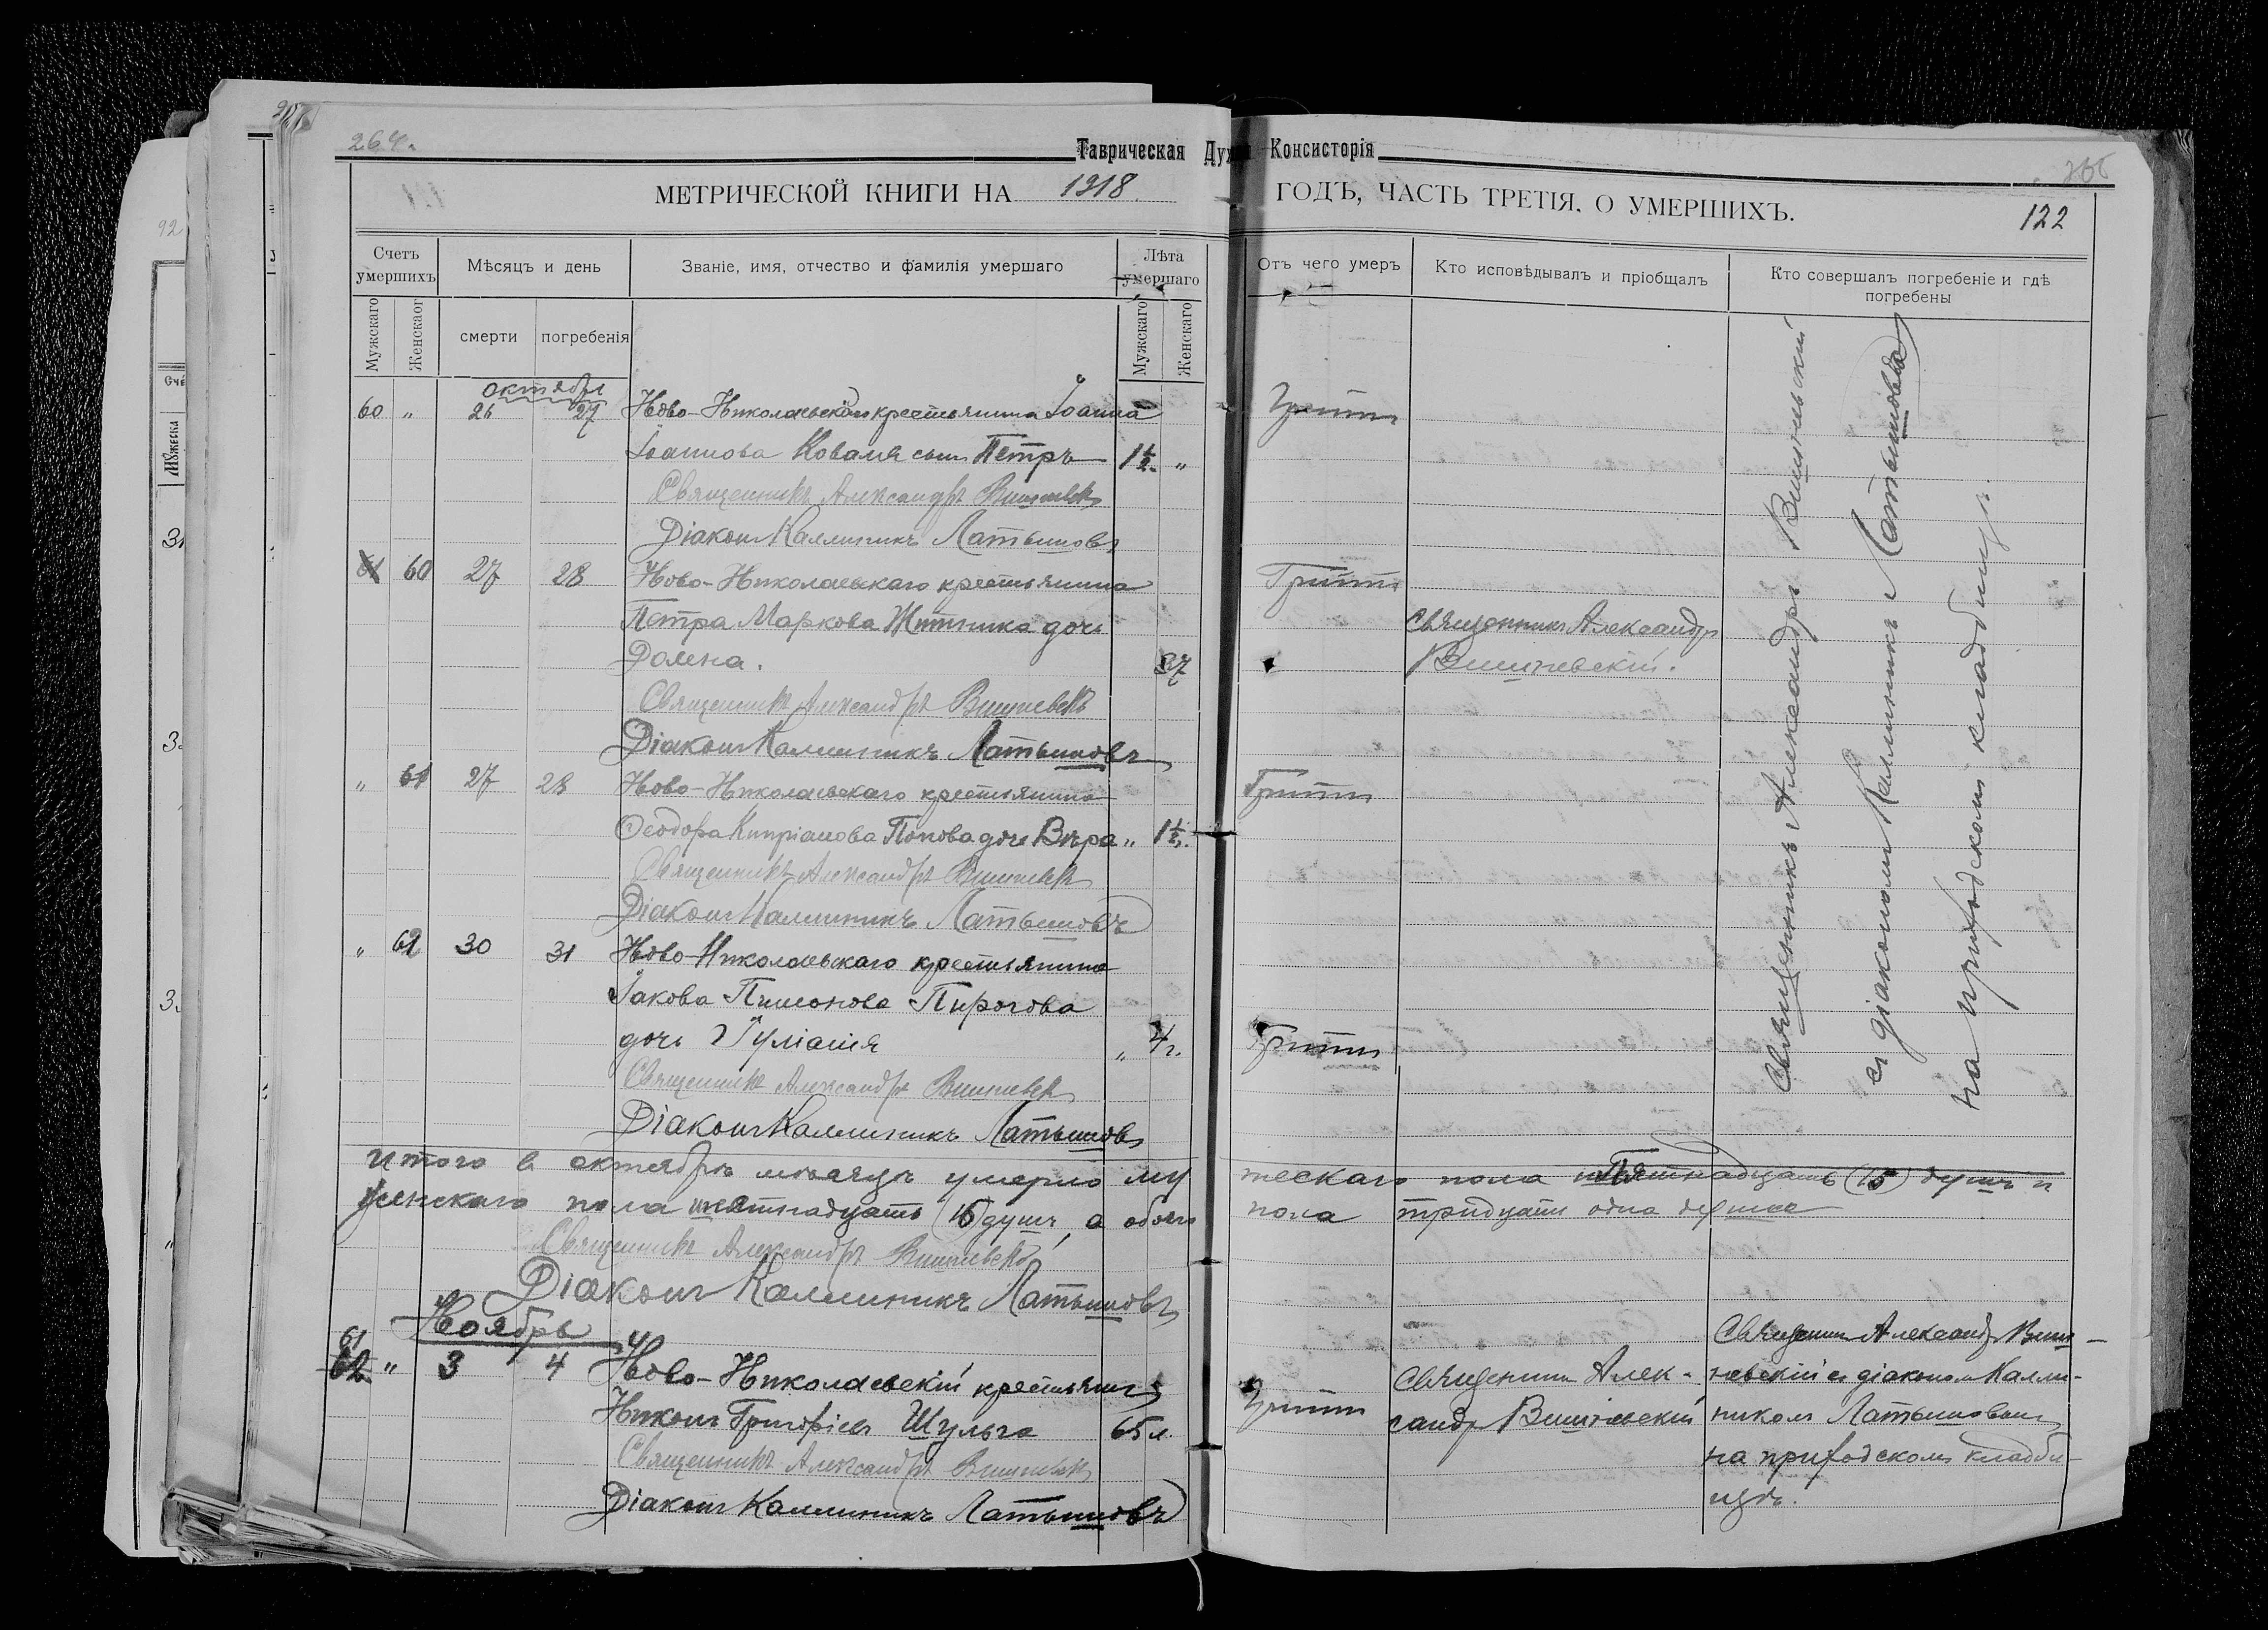 264.
Таврическая Дух Консисторія
266
МЕТРИЧЕСКОЙ КНИГИ НА 1918 ГОДЪ, ЧАСТЬ ТРЕТІЯ, О УМЕРШИХЪ.
122
Счетъ умершихъ
Мѣсяцъ и день
Званіе, имя, отчество и фамилія умершаго
Лѣта умершаго
Отъ чего умеръ
Кто исповѣдывалъ и пріобщалъ
Кто совершалъ погребеніе и гдѣ
погребены
Мужскаго
Женскаго
смерти
погребенія
Мужскаго
Женскаго
октября
60 " 26 27 Ново-Николаевскаго крестьянина Іоанна
Гриппъ
Іоаннова Коваля сынъ Петръ 1½ "
Священникъ Александръ Вишневскій
Діаконъ Каллиникъ Латышовъ
60 27 28 Ново-Николаевскаго крестьянина
Гриппъ
Петра Маркова Житника дочь
Священникъ Александръ
Домна. 37
Вишневскій.
Священникъ Александръ Вишневскій
Діаконъ Каллиникъ Латышовъ
" 61 27 28 Ново-Николаевскаго крестьянина
Гриппъ
Ѳеодора Кипріанова Попова дочь Вѣра " 1½
Священникъ Александръ Вишневскій
Діаконъ Каллиникъ Латышовъ
" 62 30 31 Ново-Николаевскаго крестьянина
Іакова Пимонова Пирогова
дочь Іуліанія " 4 г.
Гриппъ
Священникъ Александръ Вишневскій
Діаконъ Каллиникъ Латышовъ
Священникъ Александръ Вишневскій
съ діакономъ Каллиникъ Латышовъ
на приходскомъ кладбищѣ.
Итого въ октябрѣ мѣсяцѣ умерло мужескаго пола пятнадцать (15) душъ и
женскаго пола шестнадцать (16) душъ, а обоего пола тридцать одна душа
Священникъ Александръ Вишневскій
Діаконъ Каллиникъ Латышовъ
Ноябрь
61
62 " 3 4 Ново-Николаевскій крестьянинъ
Никонъ Григорьевъ Шульга 65 л.
Гриппъ
Священникъ Алек-
сандръ Вишневскій
Священникъ Александръ Виш-
невскій съ діакономъ Калли-
никомъ Латышовымъ
на приходскомъ кладби-
щѣ.
Священникъ Александръ Вишневскій
Діаконъ Каллиникъ Латышовъ